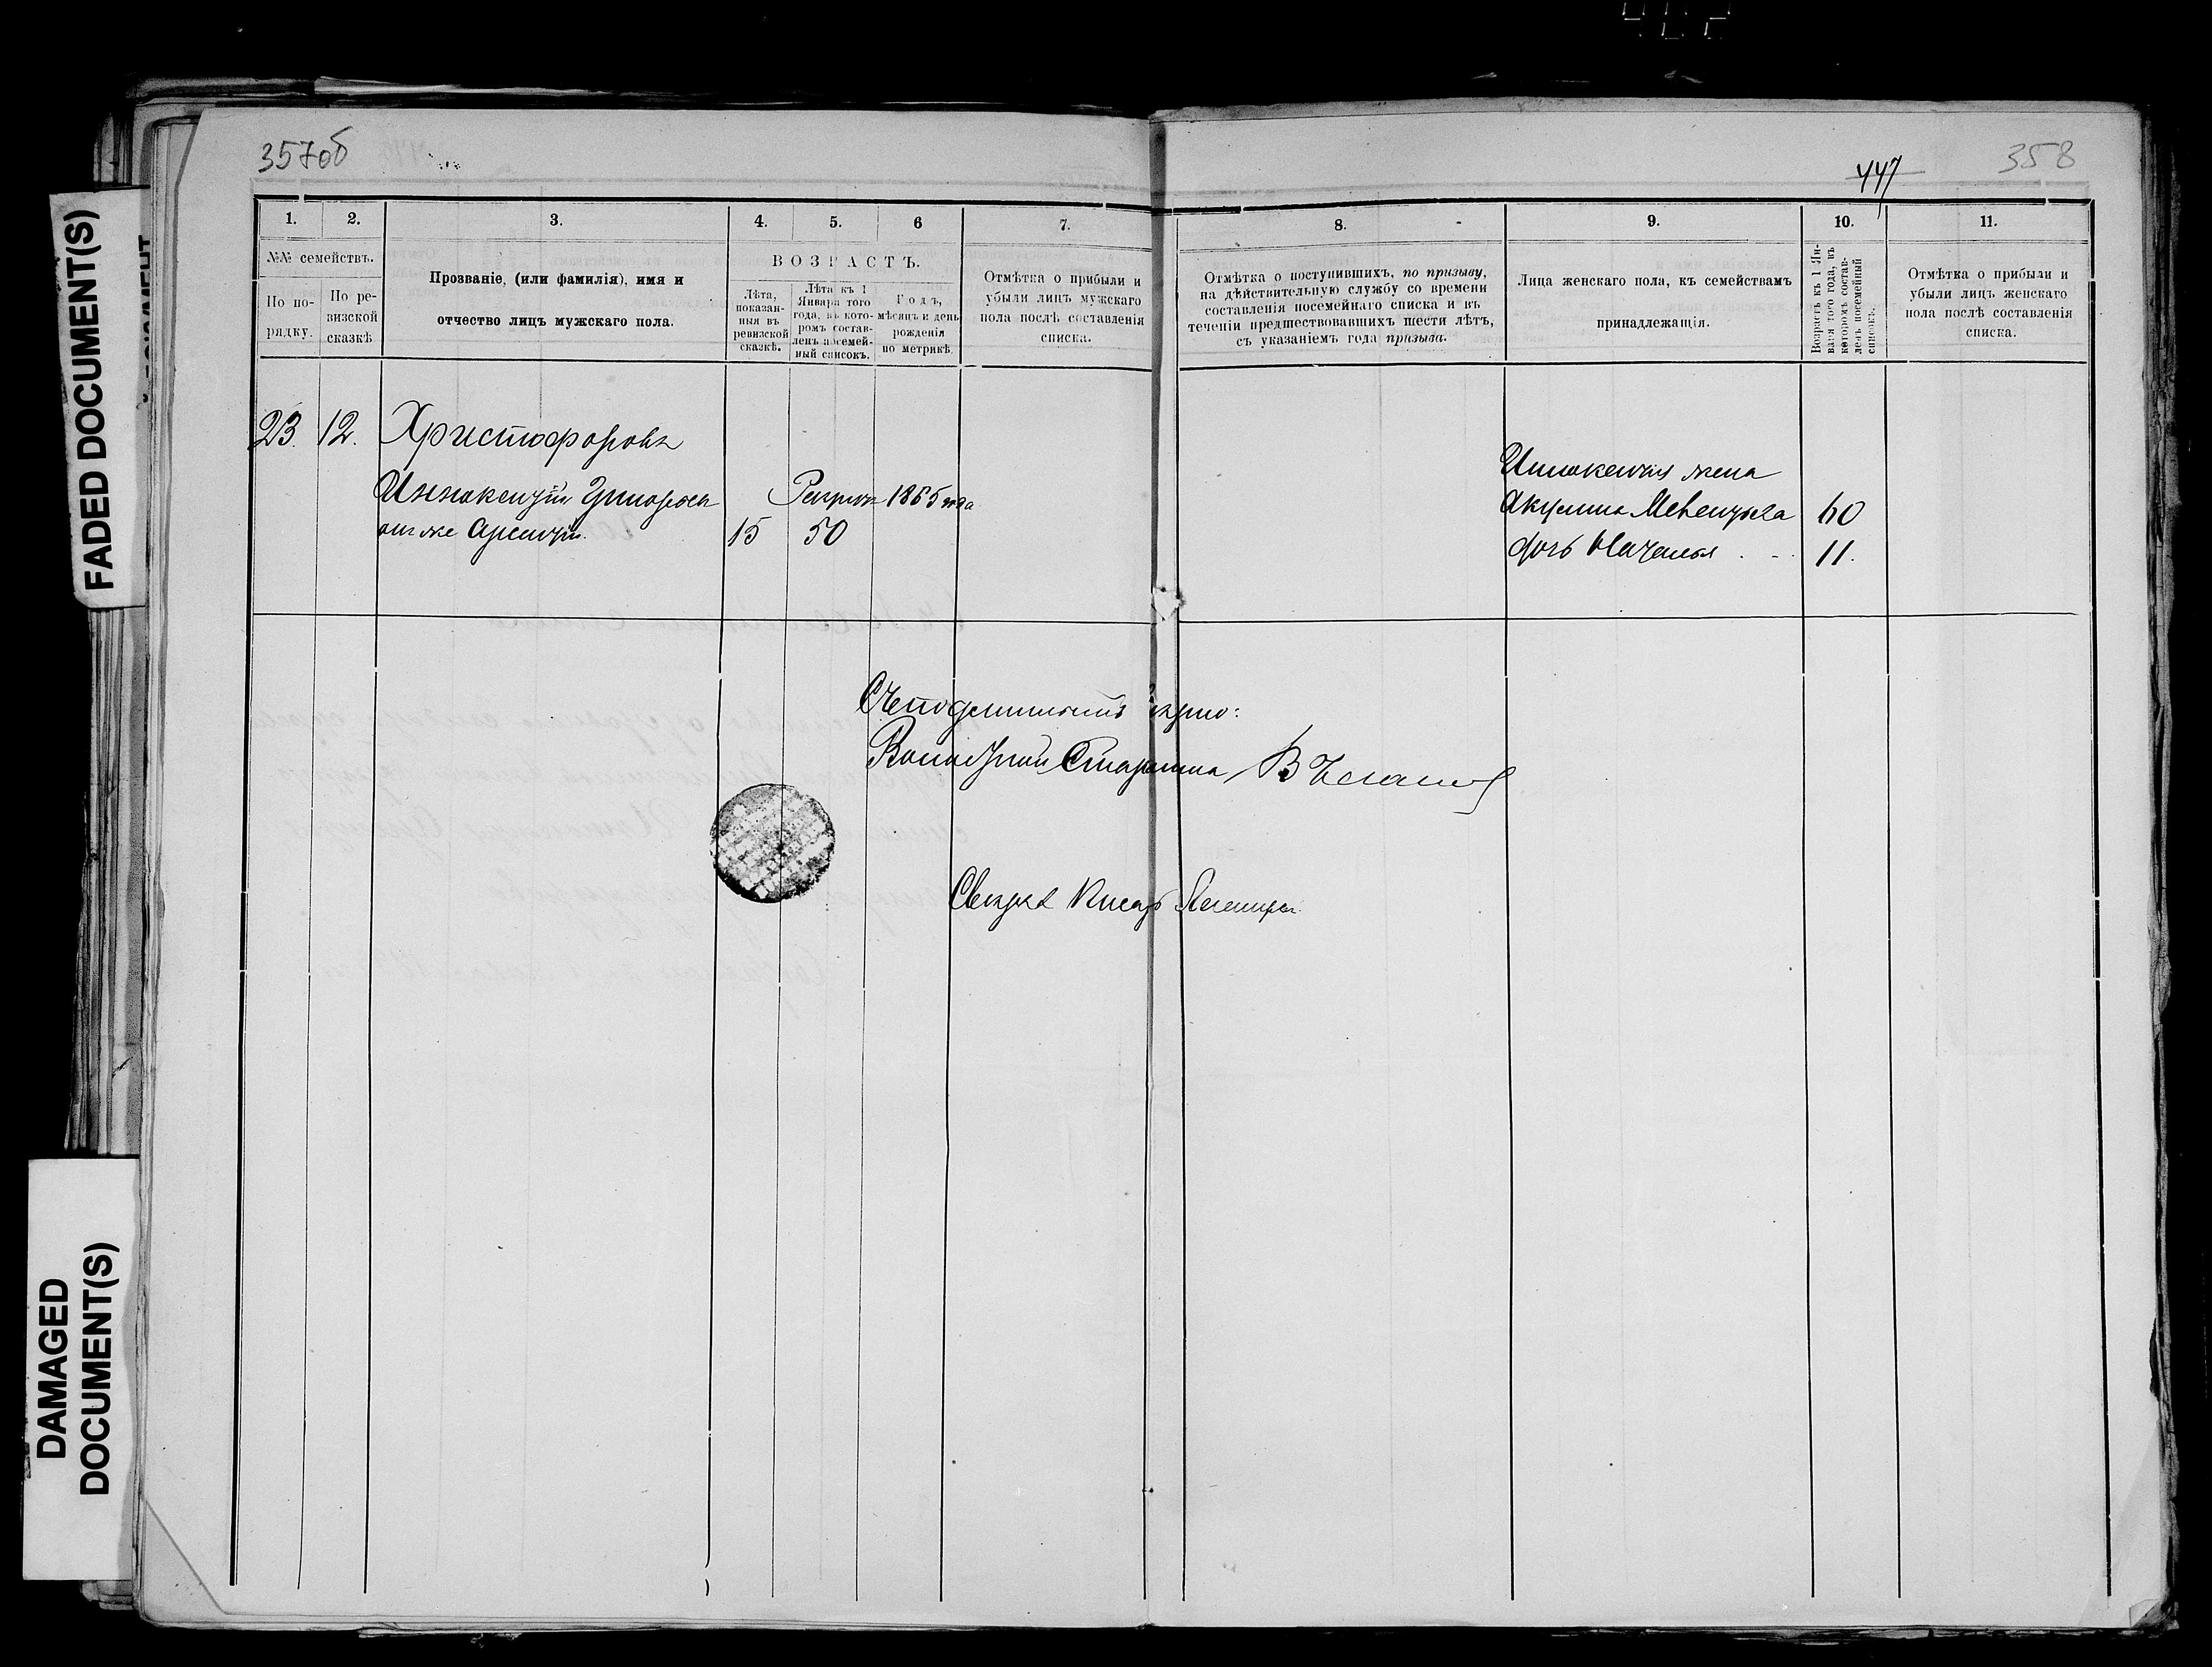 357об
447
358
FADED DOCUMENT(S)
DAMAGED
DOCUMENT(S)
1.
2.
3.
4.
5.
6
7.
8.
9.
10.
11.
№№ семействъ.
По по-
рядку.
По ре-
визской
сказкѣ
Прозваніе, (или фамилія), имя и
отчество лицъ мужскаго пола.
ВОЗРАСТЪ.
Лѣта,
показан-
ныя въ
ревизской
сказкѣ.
Лѣта къ 1
Января того
года, въ кото-
ромъ состав-
ленъ посемей-
ный списокъ.
Годъ,
мѣсяцъ и день
рожденія
по метрикѣ.
Отмѣтка о прибыли и
убыли лицъ мужскаго
пола послѣ составленія
списка.
Отмѣтка о поступившихъ, по призыву,
на дѣйствительную службу со времени
составленія посемейнаго списка и въ
теченіи предшествовавшихъ шести лѣтъ,
съ указаніемъ года призыва.
Лица женскаго пола, къ семействамъ
принадлежащія.
Возрастъ къ 1 Ян-
варя того года, въ
которомъ состав-
ленъ посемейный
списокъ.
Отмѣтка о прибыли и
убыли лицъ женскаго
пола послѣ составленія
списка.
23. 12. Христофоровъ
Иннокентій Григорьевъ
Рекрутъ 1865 года
онъ же Арсентій. 15 50
Иннокентія жена
Акулина 60
дочь Наталья 11.
Съ подлиннымъ вѣрно:
Волостной Старшина
Свѣрялъ Писарь